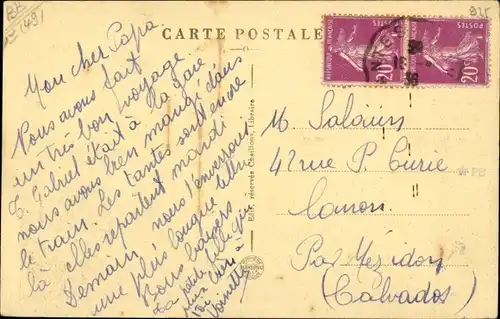 CARTE POSTALE
Mon cher Papa
Nous avons fait
un très bon voyage.
C. Gabriel était à la gare
nous avons bien mangé dans
le train. Les tantes sont encore
là elles repartent mardi
Demain nous t'enverrons
une plus longue lettre
Nous baisers
La petite fille qui
plus
Edit. réservée Chaillous, Libraire
REPUBLIQUE FRANÇAISE
POSTES
20c
REPUBLIQUE FRANÇAISE
POSTES
20c
M Salaün
42 rue P. Curie
Canon
Par Mezidon
(Calvados)